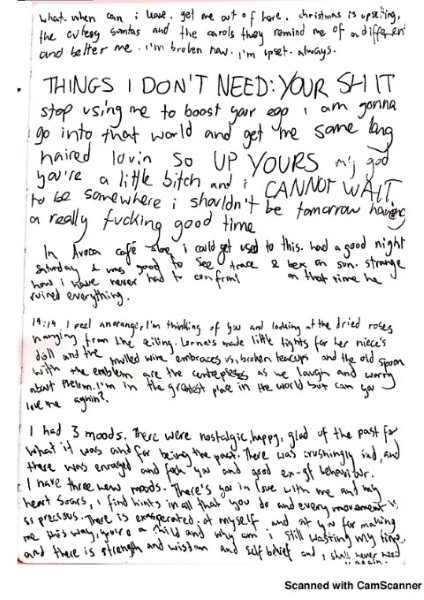 what. when can i leave. get me out of here. christmas is upsetting.
the cutesy santas and the carols they remind me of a different
and better me. i'm broken now. i'm upset. always.
THINGS I DON'T NEED: YOUR SHIT
stop using me to boost your ego i am gonna
go into that world and get me some long
haired lovin SO UP YOURS my god
you're a little bitch and i CANNOT WAIT
to be somewhere i shouldn't be tomorrow having
a really fucking good time
In Avoca café i could get used to this. had a good night
saturday & was good to see trace & bex on sun. strange
how i have never had to confront on that time he
ruined everything.
I feel an orange, I'm thinking of you and looking at the dried roses
hanging from the ceiling. Lorna's made little tights for her niece's
doll and the mulled wine embraces us, broken teacups and the old spoon
with the emblem are the centrepieces as we laugh and worry
about I'm in the greatest place in the world but can you
love me again?.
I had 3 moods. There were nostalgic, happy, glad of the past for
what it was and for being the past. There was crushingly sad, and
there was enraged and fuck you and good behaviour.
I have three new moods. There's you in love with me and my
heart soars, i find hints in all that you do and every movement is
so precious. There is exasperated, at myself and at you for making
me this way, you're a child and why am i still wasting my time,
and there is strength and wisdom and self belief and i shall never need
again.
Scanned with CamScanner